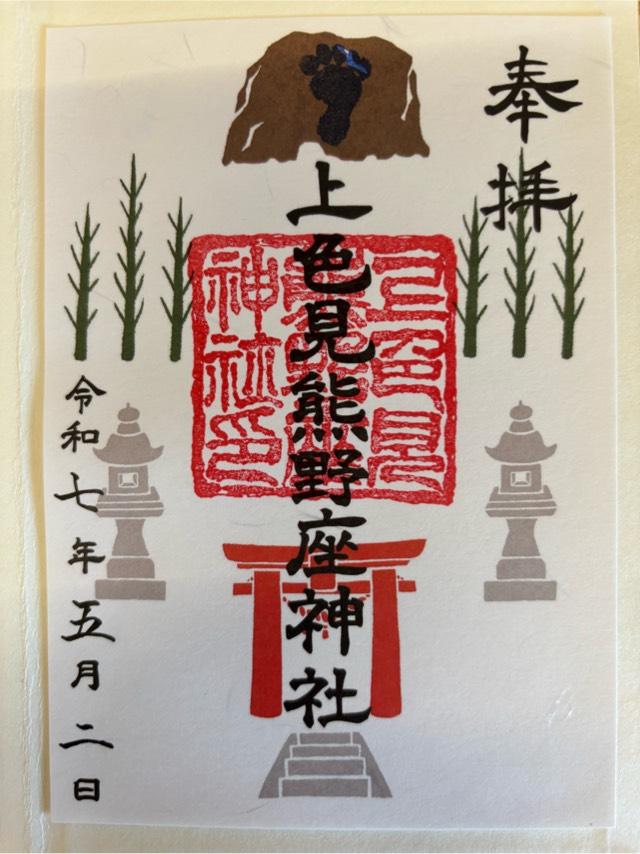 奉拝
上色見熊野座神社
上色見熊野座神社印
令和七年五月二日